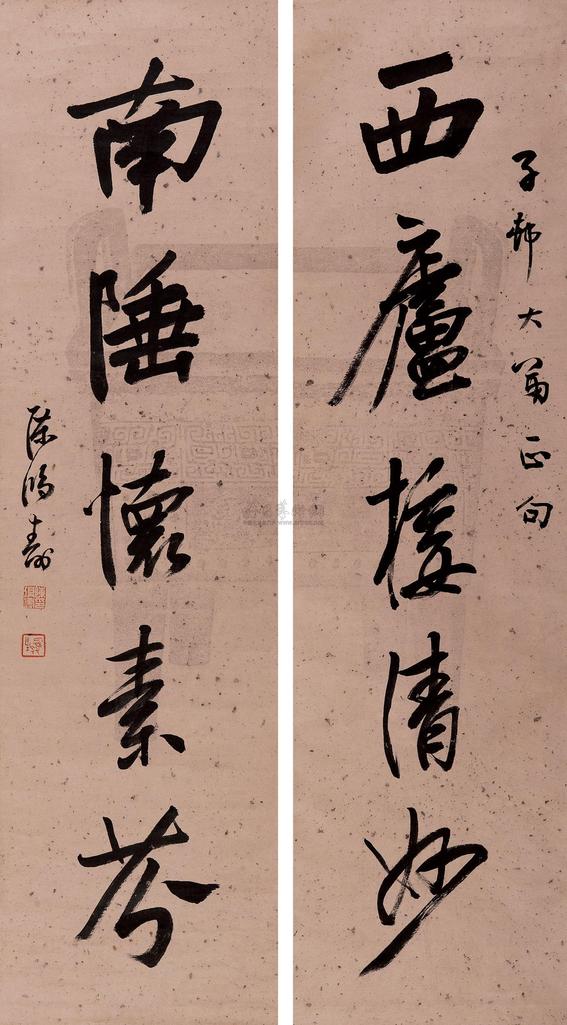 子邨大弟正句
西廬接清妙
南陲懷素芬
陳鴻壽